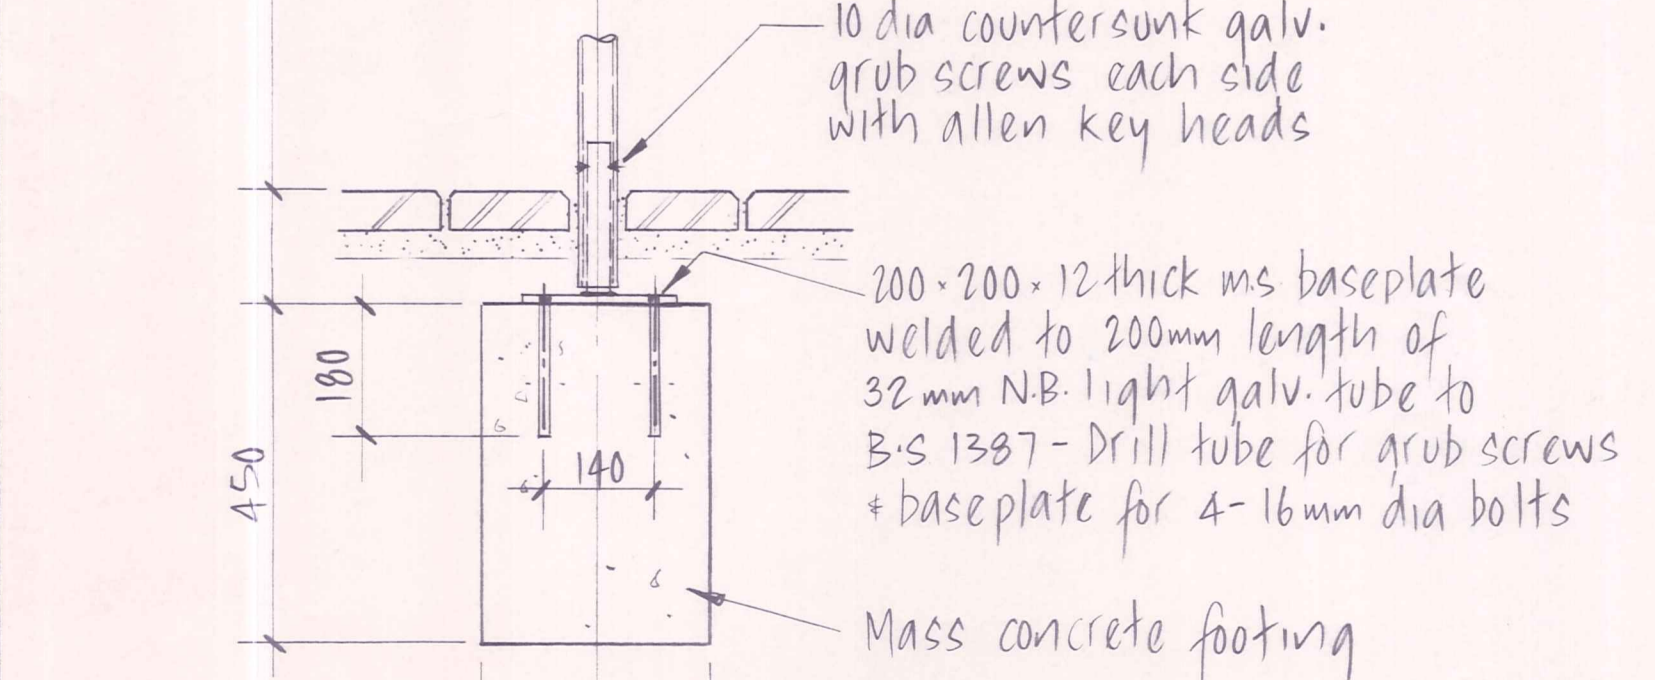 10 dia countersunk galv.
grub screws each side
with allen key heads
200 × 200 × 12 thick m.s baseplate
welded to 200mm length of
32mm N.B. light galv. tube to
B.S 1387 - Drill tube for grub screws
& baseplate for 4-16mm dia bolts
180
450
140
Mass concrete footing